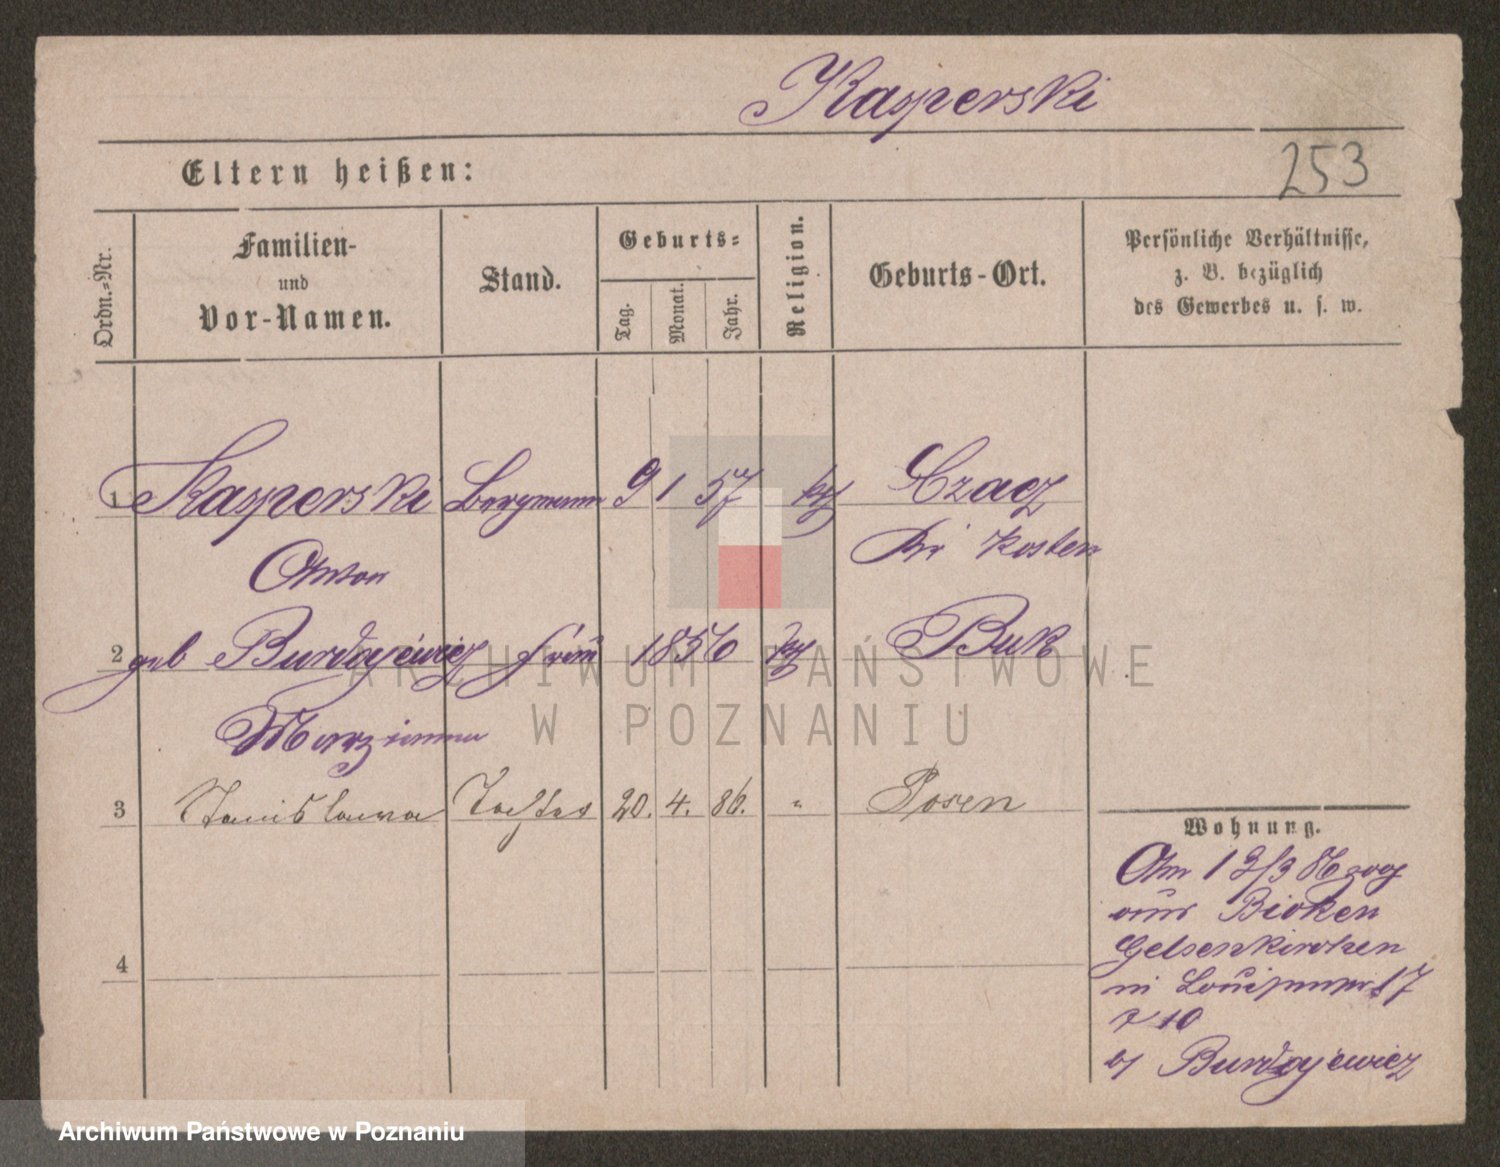 Kasperski
253
Eltern heißen:
Ordn.-Nr.
Familien-
und
Vor-Namen.
Stand.
Geburts-
Tag.
Monat.
Jahr.
Religion.
Geburts-Ort.
Persönliche Verhältnisse,
z. B. bezüglich
des Gewerbes u. s. w.
1 Kasperski Bergmann 9 1 57 Czacz
Kr Kosten
Anton
2 geb Burdajewicz Frau 1856 Buk
Maryianna
3 Stanislawa Tochter 20. 4. 86. " Posen
4
Wohnung.
Am 12/3 86 zog
aus Bicken
Gelsenkirchen
in 17
10
Burdajewicz
ARCHIWUM PAŃSTWOWE
W POZNANIU
Archiwum Państwowe w Poznaniu